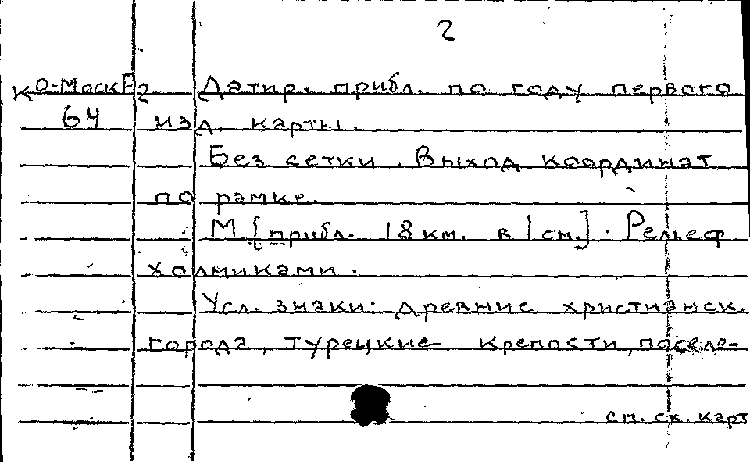 2
Ко-Моск Р2 Датир. прибл. по году первого
64 изд. карты.
Без сетки. Выход координат
по рамке.
М [прибл. 18 км. в 1 см.]. Рельеф
холмиками.
Усл. знаки: древние христианск.
города, турецкие крепости, поселе-
сл. сх. карт